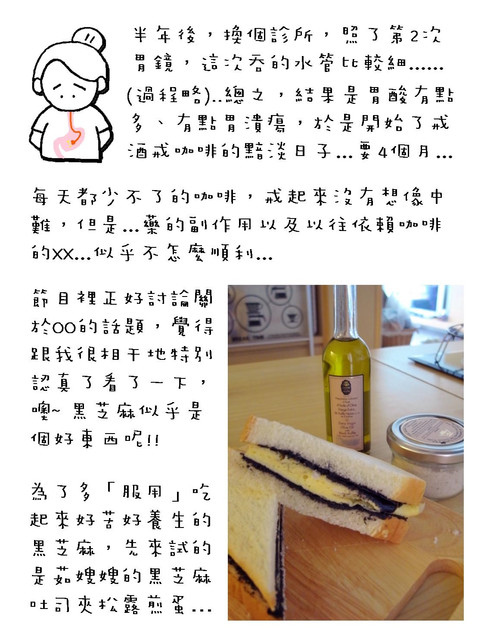 半年後，換個診所，照了第2次
胃鏡，這次吞的水管比較細......
(過程略)..總之，結果是胃酸有點
多、有點胃潰瘍，於是開始了戒
酒戒咖啡的黯淡日子...要4個月...
每天都少不了的咖啡，戒起來沒有想像中
難，但是...藥的副作用以及以往依賴咖啡
的XX...似乎不怎麼順利...
節目裡正好討論關
於OO的話題，覺得
跟我很相干地特別
認真了看了一下，
噢~ 黑芝麻似乎是
個好東西呢!!
為了多「服用」吃
起來好苦好養生的
黑芝麻，先來試的
是茹嫂嫂的黑芝麻
吐司夾松露煎蛋...